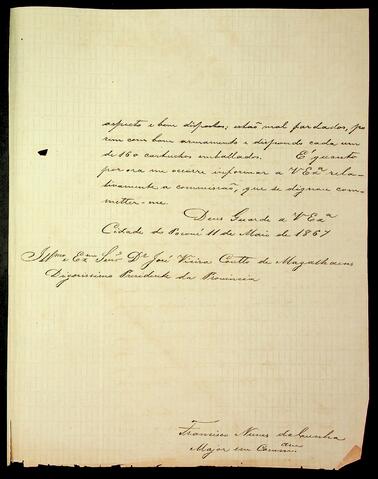 aspecto e bem dispostos; estão mal fardados, po
rem com bom armamento e dispondo cada um
de 160 cartuchos emballados. É quanto
por ora me occorre informar a V Exª rela-
tivamente a commissão, que se dignou com-
metter-me.
Deus Guarde a V Exª
Cidade de Poconé 11 de Maio de 1867
Illmo e Ex Senr Dr José Vieira Coutto de Magalhaens
Digníssimo Prezidente da Provincia
Francisco Nunes da Cunha
Major em Commam